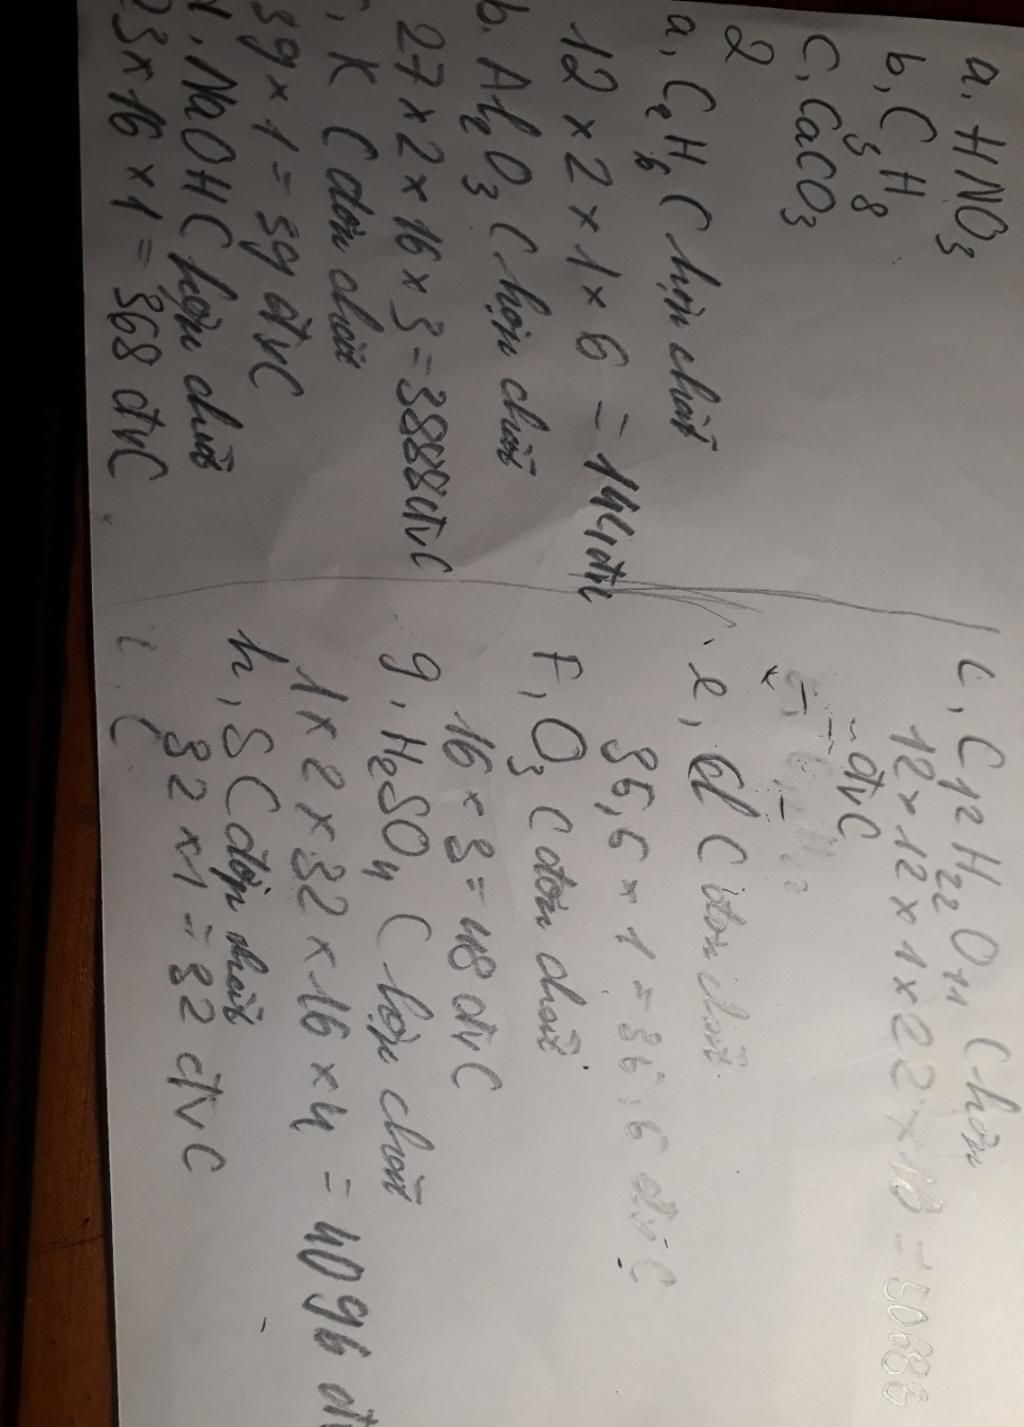 a. HNO3
b, C3H8
C, CaCO3
2
a, C2H6 (hợp chất
12 x 2 x 1 x 6 = 144đv
b. Al2O3 (hợp chất
27 x 2 x 16 x 3 = 3888đvC
, K (đơn chất
39 x 1 = 39 đvC
, NaOH (hợp chất
23 x 16 x 1 = 368 đvC
i, C12H22O11 (hợp
12 x 12 x 1 x 22 x 16 = 50688
đvC
e, Cl (đơn chất
35,5 x 1 = 35,5 đvC
F, O3 (đơn chất
16 x 3 = 48 đvC
g, H2SO4 (hợp chất
1 x 2 x 32 x 16 x 4 = 4096 đv
h, S (đơn chất
32 x 1 = 32 đvC
i, (